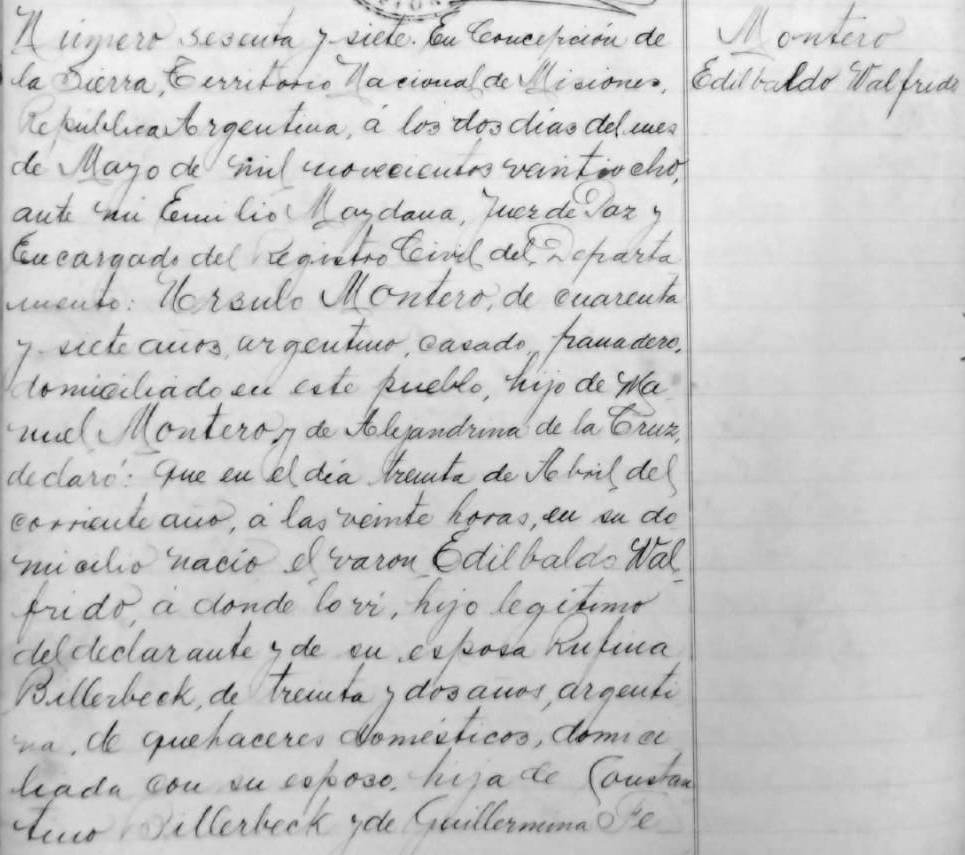 Número sesenta y siete. En Concepción de
la Sierra, Territorio Nacional de Misiones,
República Argentina, á los dos dias del mes
de Mayo de mil novecientos veintiocho,
ante mi Emilio Maydana, Juez de Paz y
Encargado del Registro Civil del Departa
mento: Ursulo Montero, de cuarenta
y siete años, argentino, casado,
domiciliado en este pueblo, hijo de Ma
nuel Montero y de Alejandrina de la Cruz,
declaró: Que en el día treinta de Abril del
corriente año, á las veinte horas, en su do
micilio nació el varon Edilbaldo Wal
frido, á donde lo vi, hijo legitimo
del declarante y de su esposa Rufina
Billerbeck, de treinta y dos años, argenti
na, de quehaceres domésticos, domici
liada con su esposo, hija de Constan
tino Billerbeck y de Guillermina Fe
Montero
Edilbaldo Walfrido